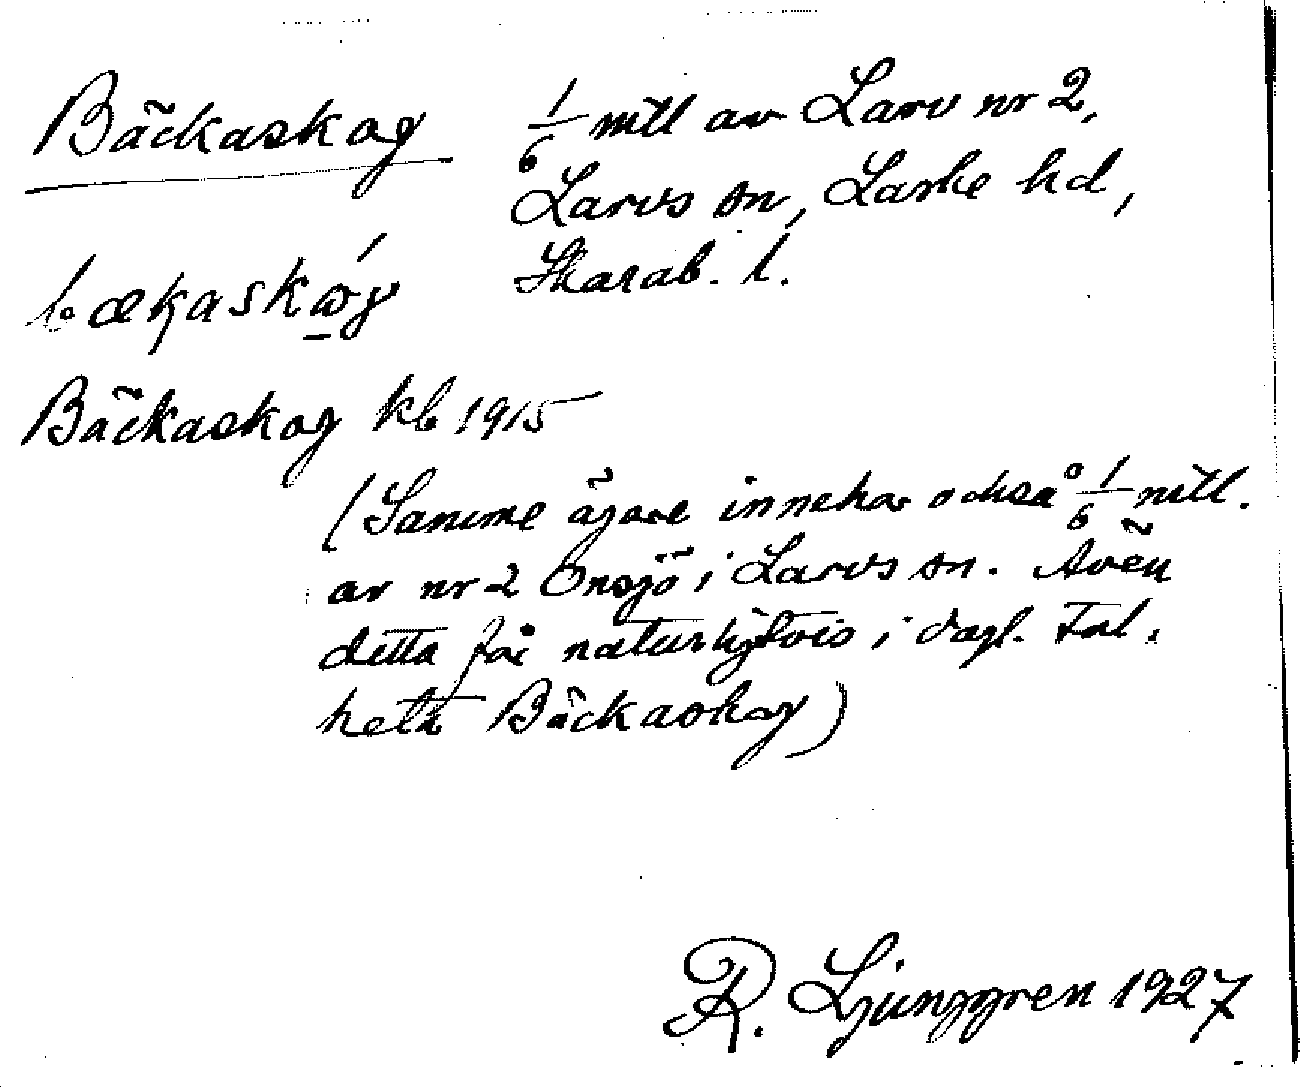 Bäckaskog 1/6 mtl av Larv nr 2,
Larvs sn, Laske hd,
Skarab. l.
bækaskóg
Bäckaskog kb 1915
(Samme ägare innehar också 1/6 mtl.
av nr 2 Önsjö i Larvs sn. Även
detta får naturligtvis i dagl. tal.
heta Bäckaskog)
R. Ljunggren 1927